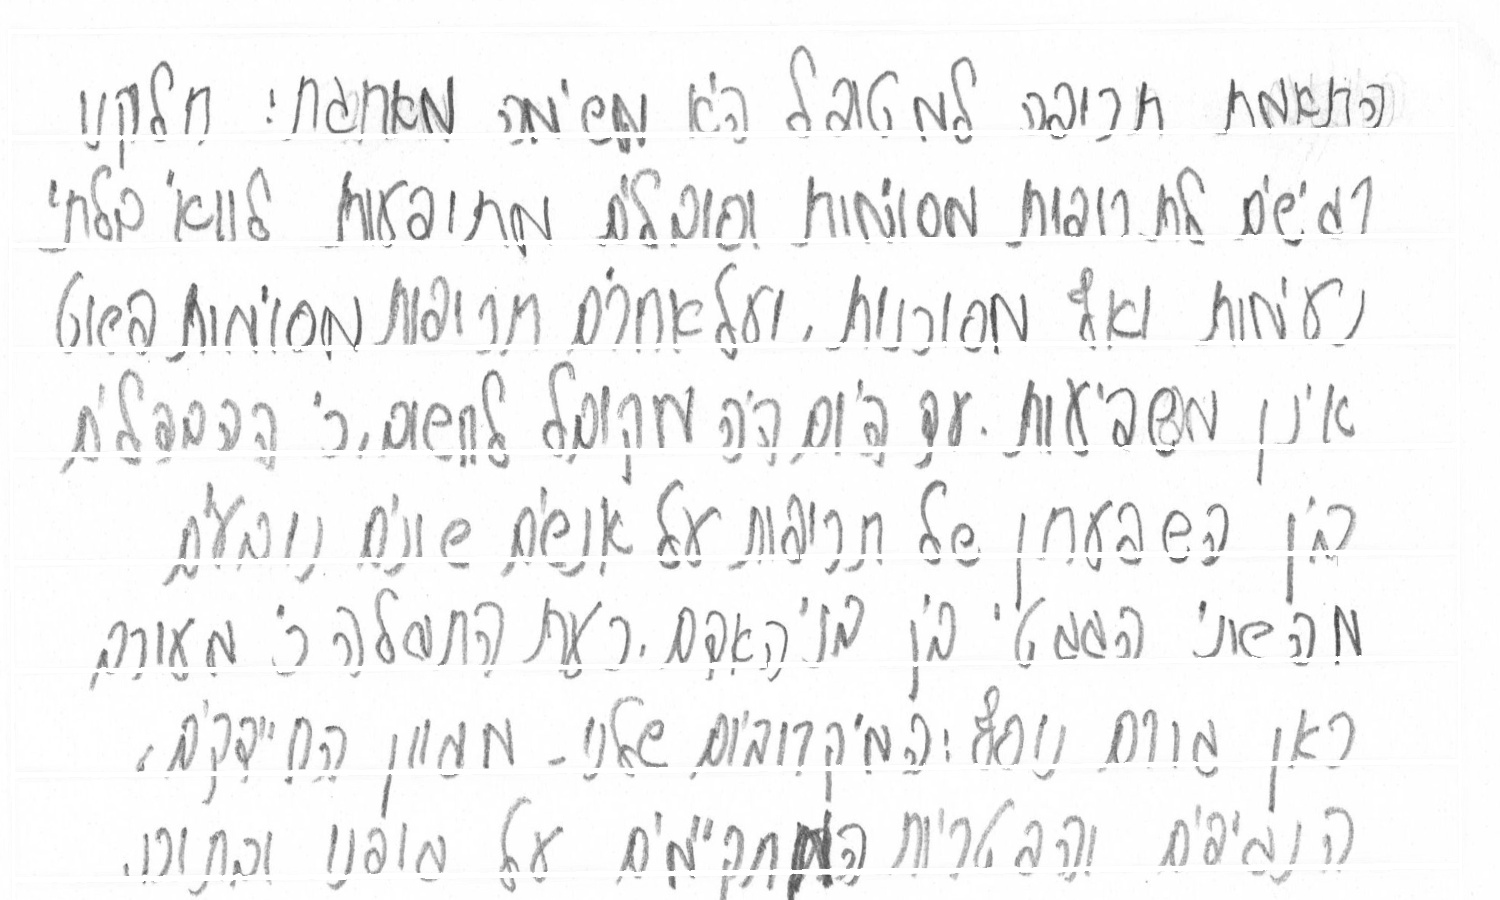 התאמת תרופה למטופל היא משימה מאתגרת: חלקנו
רגישים לתרופות מסוימות וסובלים מתופעות לוואי בלתי
נעימות ואף מסוכנות, ועל אחרים תרופות מסוימות פשוט
אינן משפיעות. עד היום היה מקובל לחשוב, כי ההבדלים
בין השפעתן של תרופות על אנשים שונים נובעים
מהשוני הגנטי בין בני האדם. כעת התגלה כי מעורב
כאן גורם נוסף: המיקרוביום שלנו - מגוון החיידקים,
הנגיפים והפטריות המתקיימים על גופנו ובתוכו.